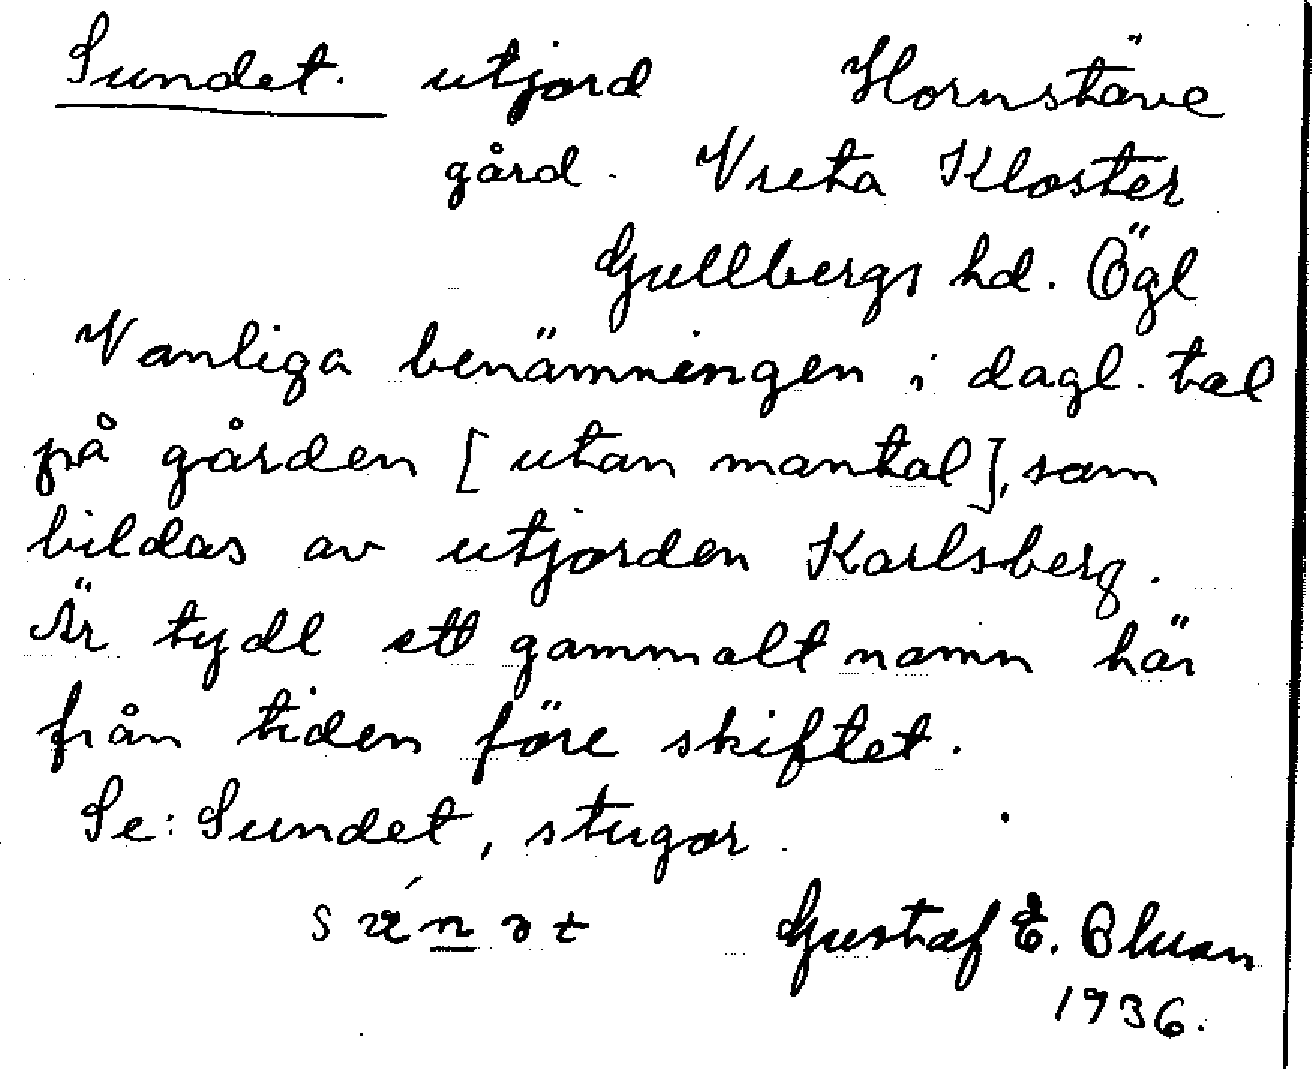 Sundet. utjord Hornstäve
gård. Vreta Kloster
Gullbergs hd. Ögl
Vanliga benämningen i dagl. tal
på gården [utan mantal], som
bildas av utjorden Karlsberg.
Är tydl ett gammalt namn här
från tiden före skiftet.
Se: Sundet, stugor.
Gustaf E.
1936.